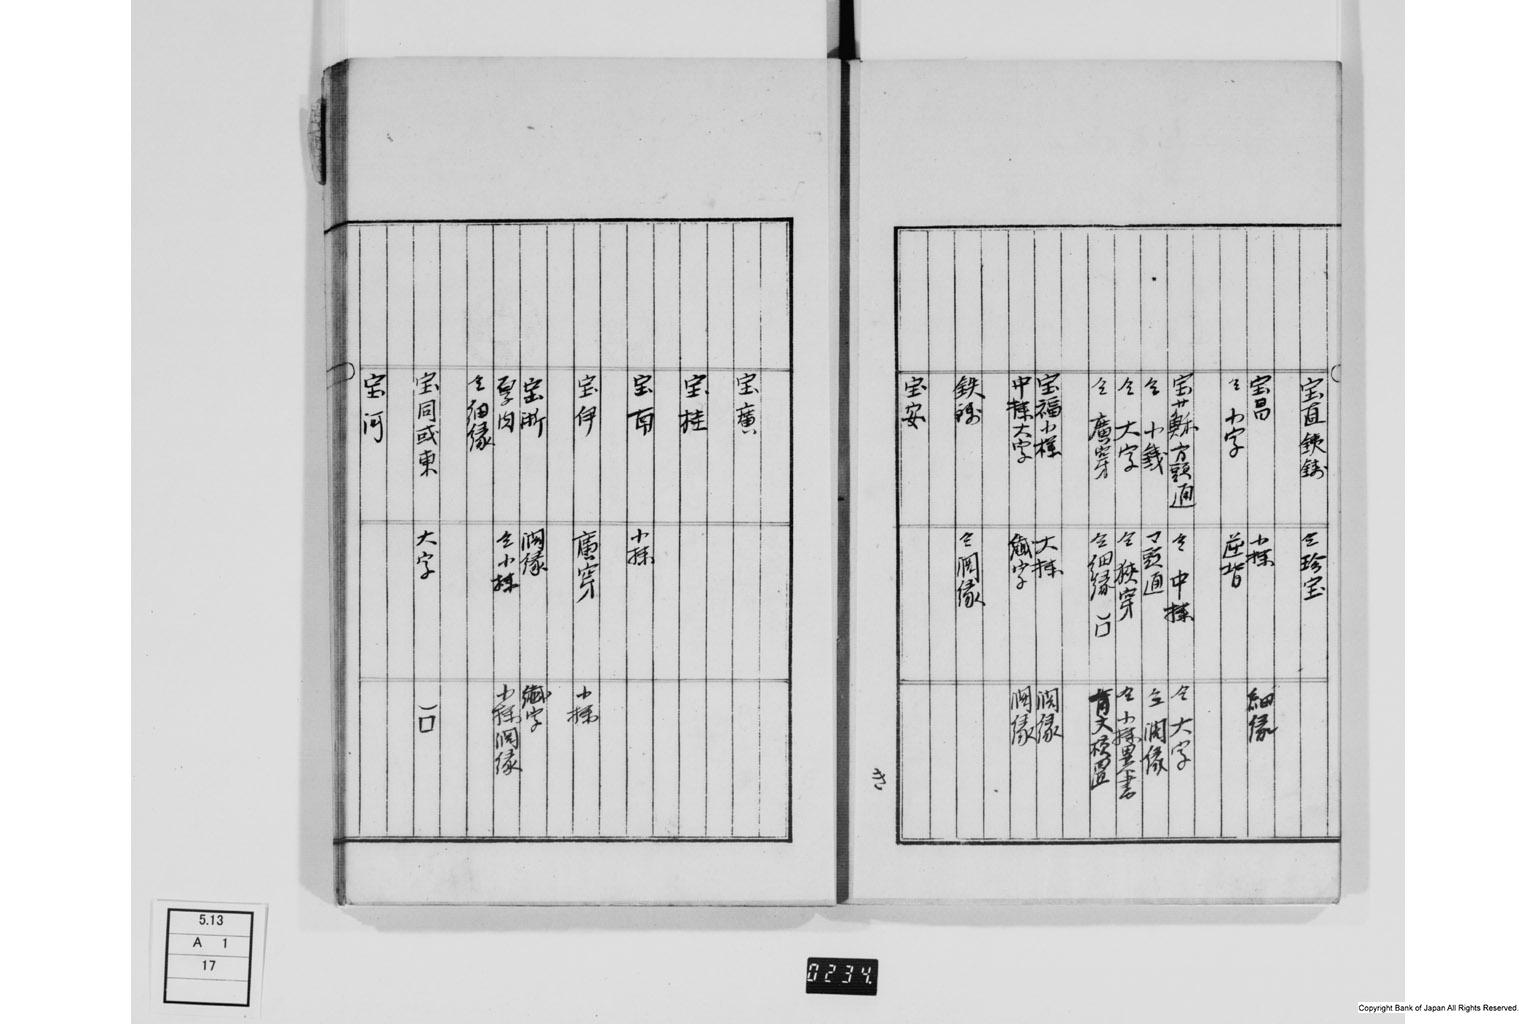 宝直鉄鋳
仝珍宝
宝昌
小様
細縁
仝小字
宝蘇方頭通
仝中様
仝大字
仝小銭
マ頭通
仝濶縁
仝大字
仝狭穿
仝小様異書
仝廣穿
仝細縁
背文横置
宝福小様
大様
濶縁
中様大字
繊字
濶縁
鉄銭
仝濶縁
宝安
き
宝廣
宝桂
宝南
小様
宝伊
廣穿
小様
宝浙
濶縁
繊字
仝小様
小様濶縁
仝細縁
宝同或東
大字
宝河
5.13
A 1
17
0234.
Copyright Bank of Japan All Rights Reserved.